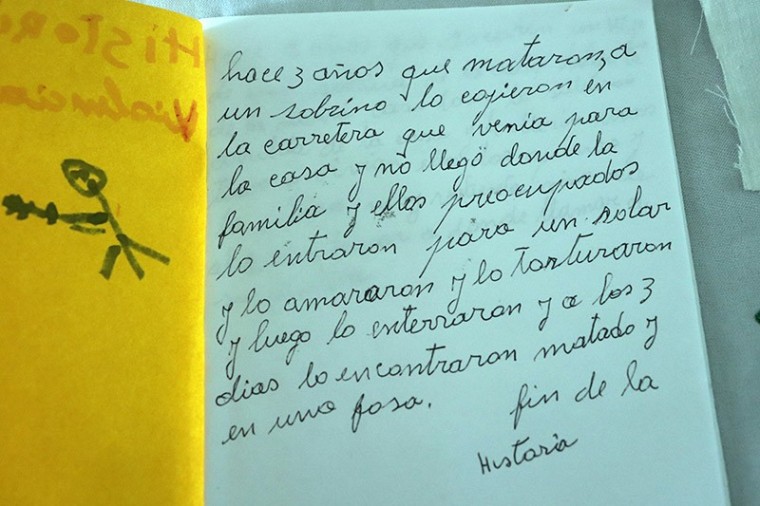 Historia
Violencia
hace 3 años que mataron a
un sobrino lo cojieron en
la carretera que venia para
la casa y no llegó donde la
familia y ellos preocupados
lo entraron para un solar
y lo amararon y lo torturaron
y luego lo enterraron y a los 3
dias lo encontraron matado y
en una fosa. fin de la
Historia